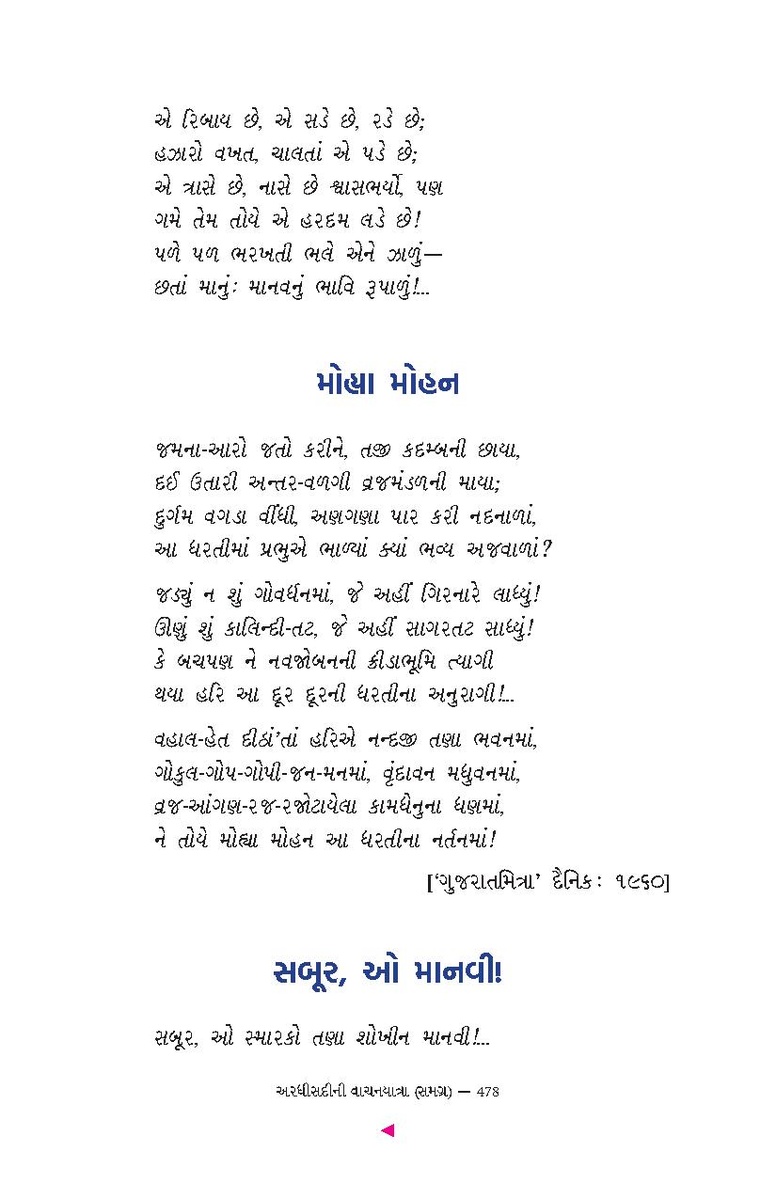 એ રિબાય છે, એ સડે છે, રડે છે;
હઝારો વખત, ચાલતાં એ પડે છે;
એ ત્રાસે છે, નાસે છે શ્વાસભર્યો, પણ
ગમે તેમ તોયે એ હરદમ લડે છે!
પળે પળ ભરખતી ભલે એને ઝાળું—
છતાં માનું: માનવનું ભાવિ રૂપાળું!...
મોહ્યા મોહન
જમના-આરો જતો કરીને, તજી કદમ્બની છાયા,
દઈ ઉતારી અન્તર-વળગી વ્રજમંડળની માયા;
દુર્ગમ વગડા વીંધી, અણગણા પાર કરી નદનાળાં,
આ ધરતીમાં પ્રભુએ ભાળ્યાં ક્યાં ભવ્ય અજવાળાં?
જડ્યું ન શું ગોવર્ધનમાં, જે અહીં ગિરનારે લાધ્યું!
ઊણું શું કાલિન્દી-તટ, જે અહીં સાગરતટ સાધ્યું!
કે બચપણ ને નવજોબનની ક્રીડાભૂમિ ત્યાગી
થયા હરિ આ દૂર દૂરની ધરતીના અનુરાગી!...
વહાલ-હેત દીઠાં'તાં હરિએ નન્દજી તણા ભવનમાં,
ગોકુલ-ગોપ-ગોપી-જન-મનમાં, વૃંદાવન મધુવનમાં,
વ્રજ-આંગણ-રજ-રજોટાયેલા કામધેનુના ધણમાં,
ને તોયે મોહ્યા મોહન આ ધરતીના નર્તનમાં!
['ગુજરાતમિત્રા' દૈનિક: ૧૯૬૦]
સબૂર, ઓ માનવી!
સબૂર, ઓ સ્મારકો તણા શોખીન માનવી!...
અરધીસદીની વાચનયાત્રા (સમગ્ર) — 478